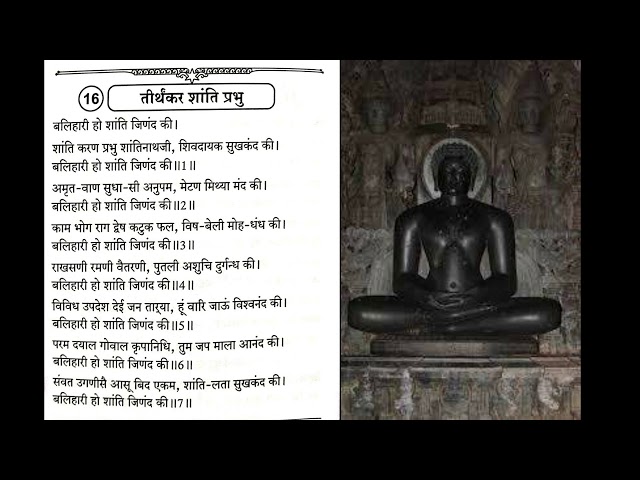 16
तीर्थंकर शांति प्रभु
बलिहारी हो शांति जिणंद की।
शांति करण प्रभु शांतिनाथजी, शिवदायक सुखकंद की।
बलिहारी हो शांति जिणंद की॥1॥
अमृत-वाण सुधा-सी अनुपम, मेटण मिथ्या मंद की।
बलिहारी हो शांति जिणंद की॥2॥
काम भोग राग द्वेष कटुक फल, विष-बेली मोह-धंध की।
बलिहारी हो शांति जिणंद की॥3॥
राखसणी रमणी वैतरणी, पुतली अशुचि दुर्गन्ध की।
बलिहारी हो शांति जिणंद की॥4॥
विविध उपदेश देई जन तार्‌या, हूं वारि जाऊं विश्वनंद की।
बलिहारी हो शांति जिणंद की॥5॥
परम दयाल गोवाल कृपानिधि, तुम जप माला आनंद की।
बलिहारी हो शांति जिणंद की॥6॥
संवत उगणीसै आसू बिद एकम, शांति-लता सुखकंद की।
बलिहारी हो शांति जिणंद की॥7॥